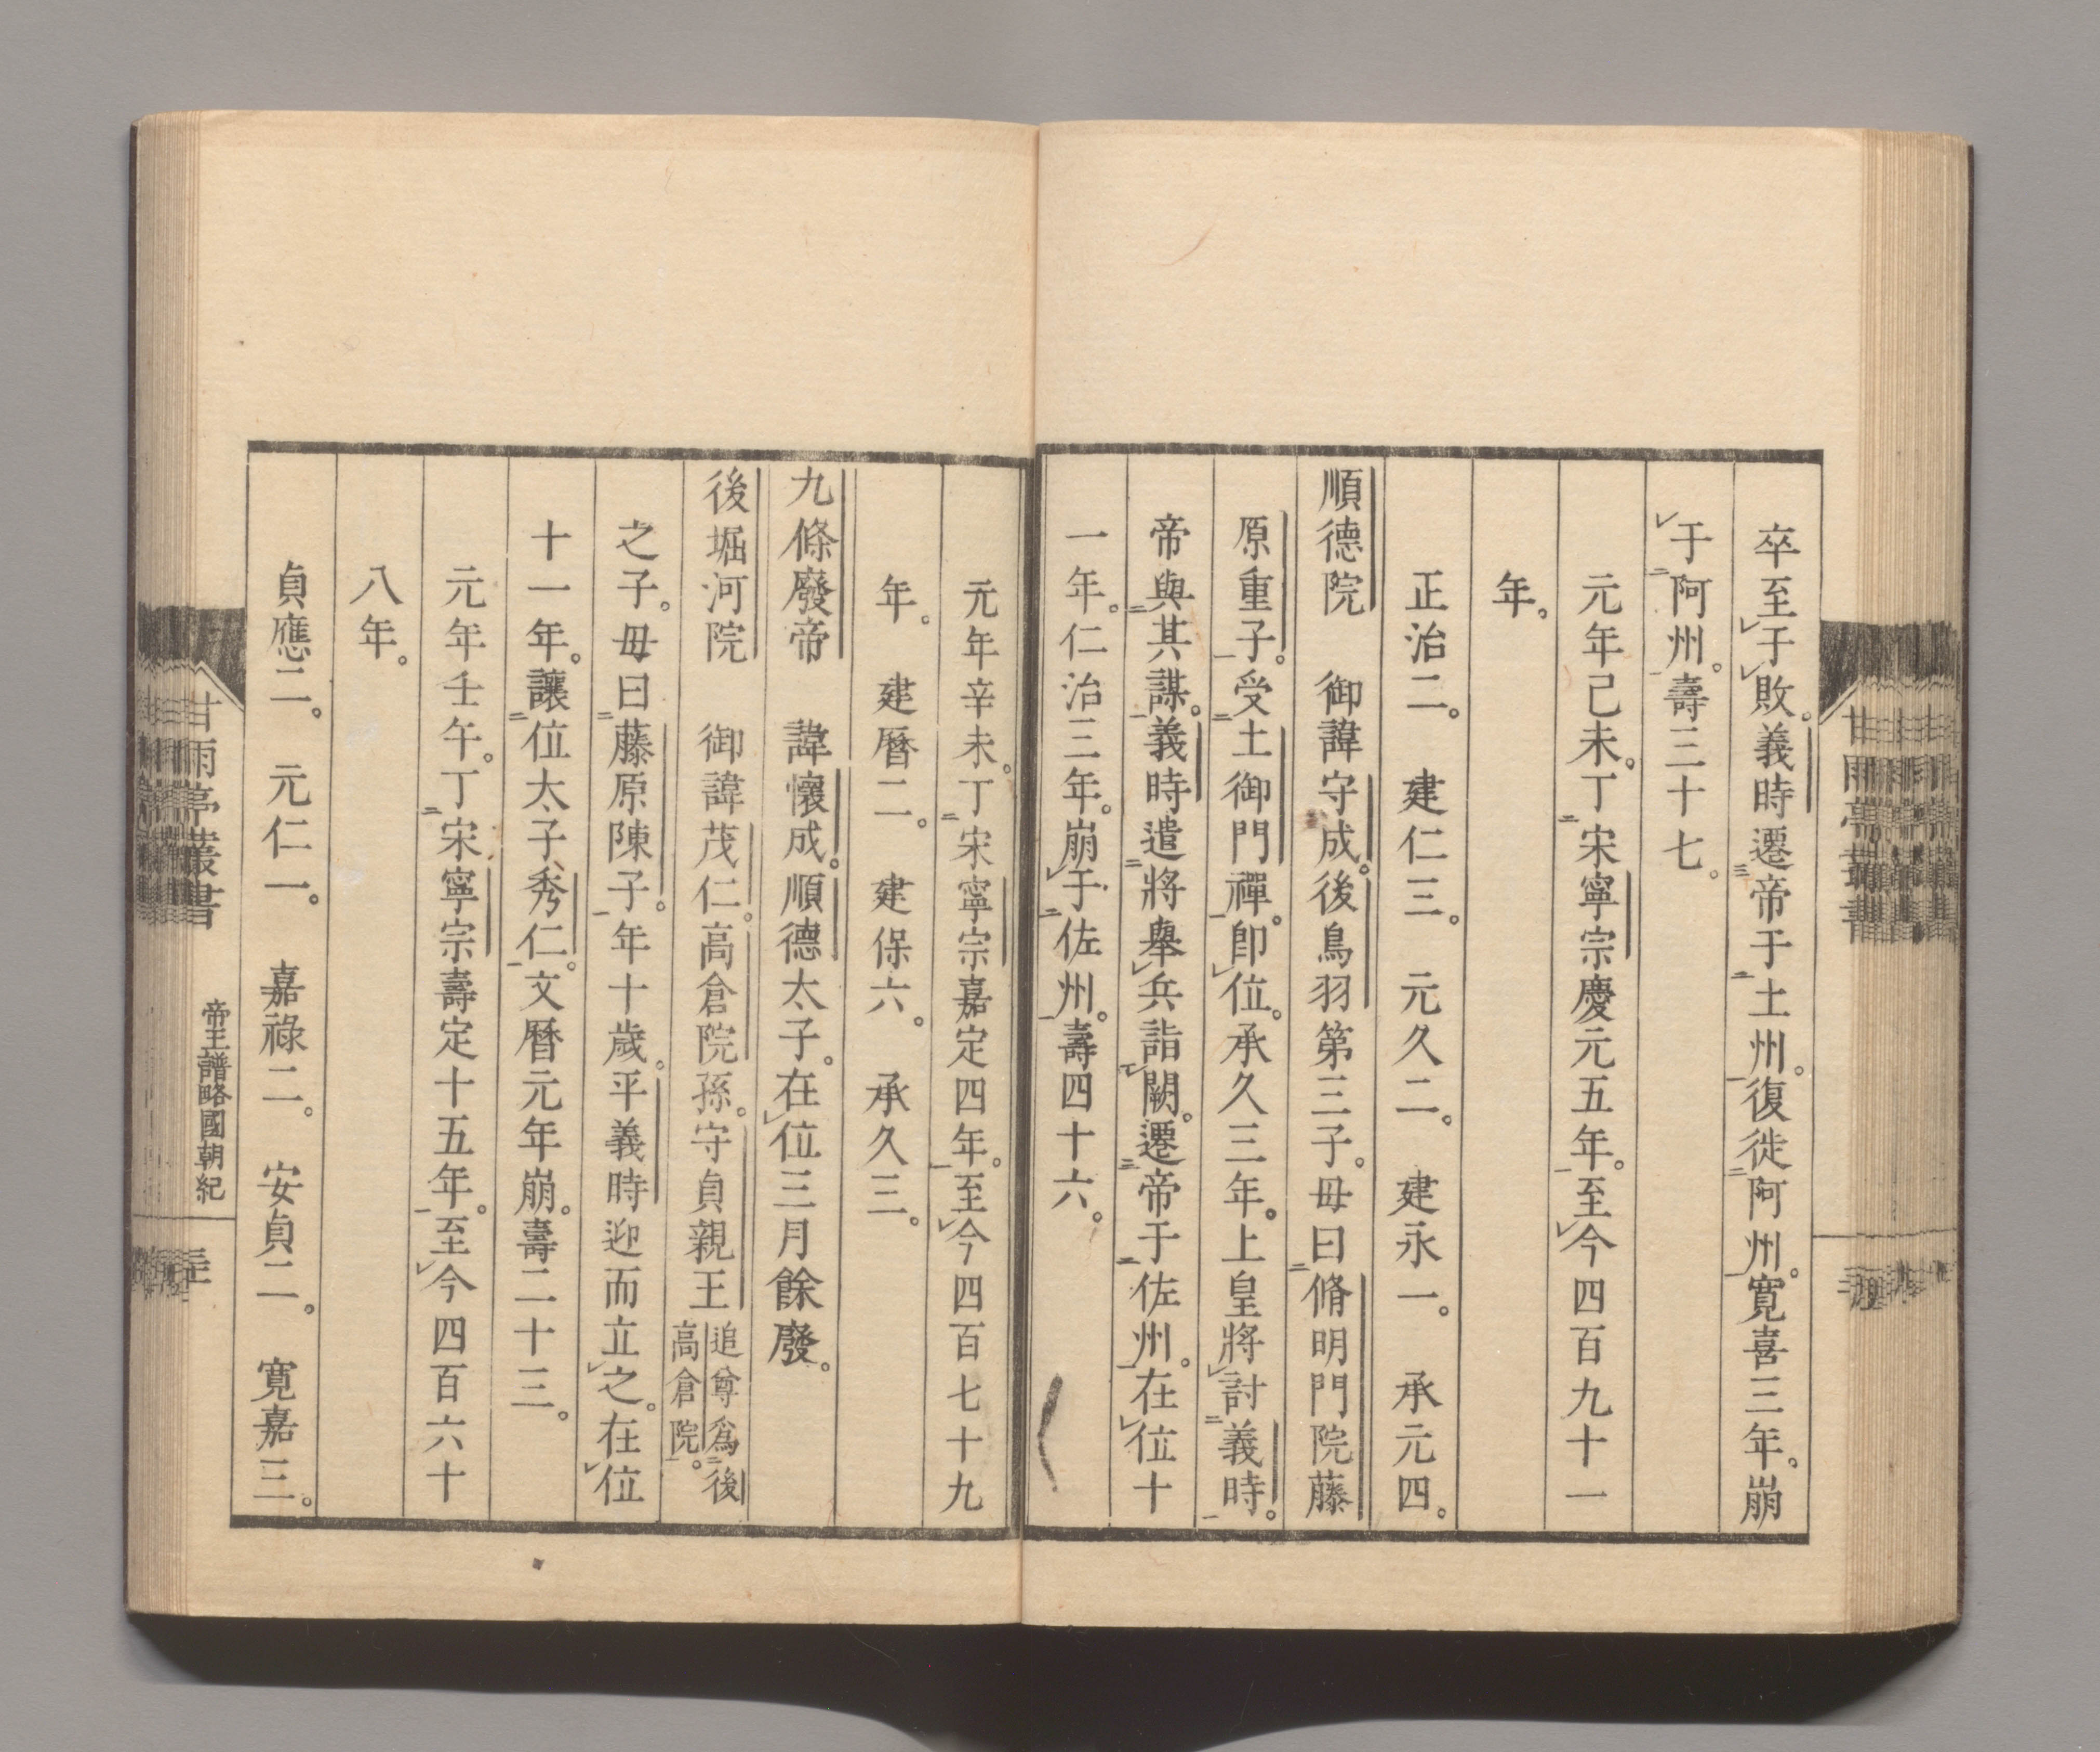 卒至于敗。義時遷帝于土州。復徙阿州。寬喜三年。崩
于阿州。壽三十七。
元年己未。丁宋寧宗慶元五年。至今四百九十一
年。
正治二。建仁三。元久二。建永一。承元四。
順德院　御諱守成。後鳥羽第三子。母曰脩明門院藤
原重子。受土御門禪。卽位。承久三年。上皇將討義時。
帝與其謀。義時遣將擧兵詣闕。遷帝于佐州。在位十
一年。仁治三年。崩于佐州。壽四十六。
元年辛未。丁宋寧宗嘉定四年。至今四百七十九
年。建曆二。建保六。承久三。
九條廢帝　諱懷成。順德太子。在位三月餘廢。
後堀河院　御諱茂仁。高倉院孫。守貞親王追尊爲後
高倉院。
之子。母曰藤原陳子。年十歲。平義時迎而立之。在位
十一年。讓位太子秀仁。文曆元年崩。壽二十三。
元年壬午。丁宋寧宗壽定十五年。至今四百六十
八年。
貞應二。元仁一。嘉祿二。安貞二。寬嘉三。
甘雨亭叢書
帝王譜略國朝紀
甘雨亭叢書